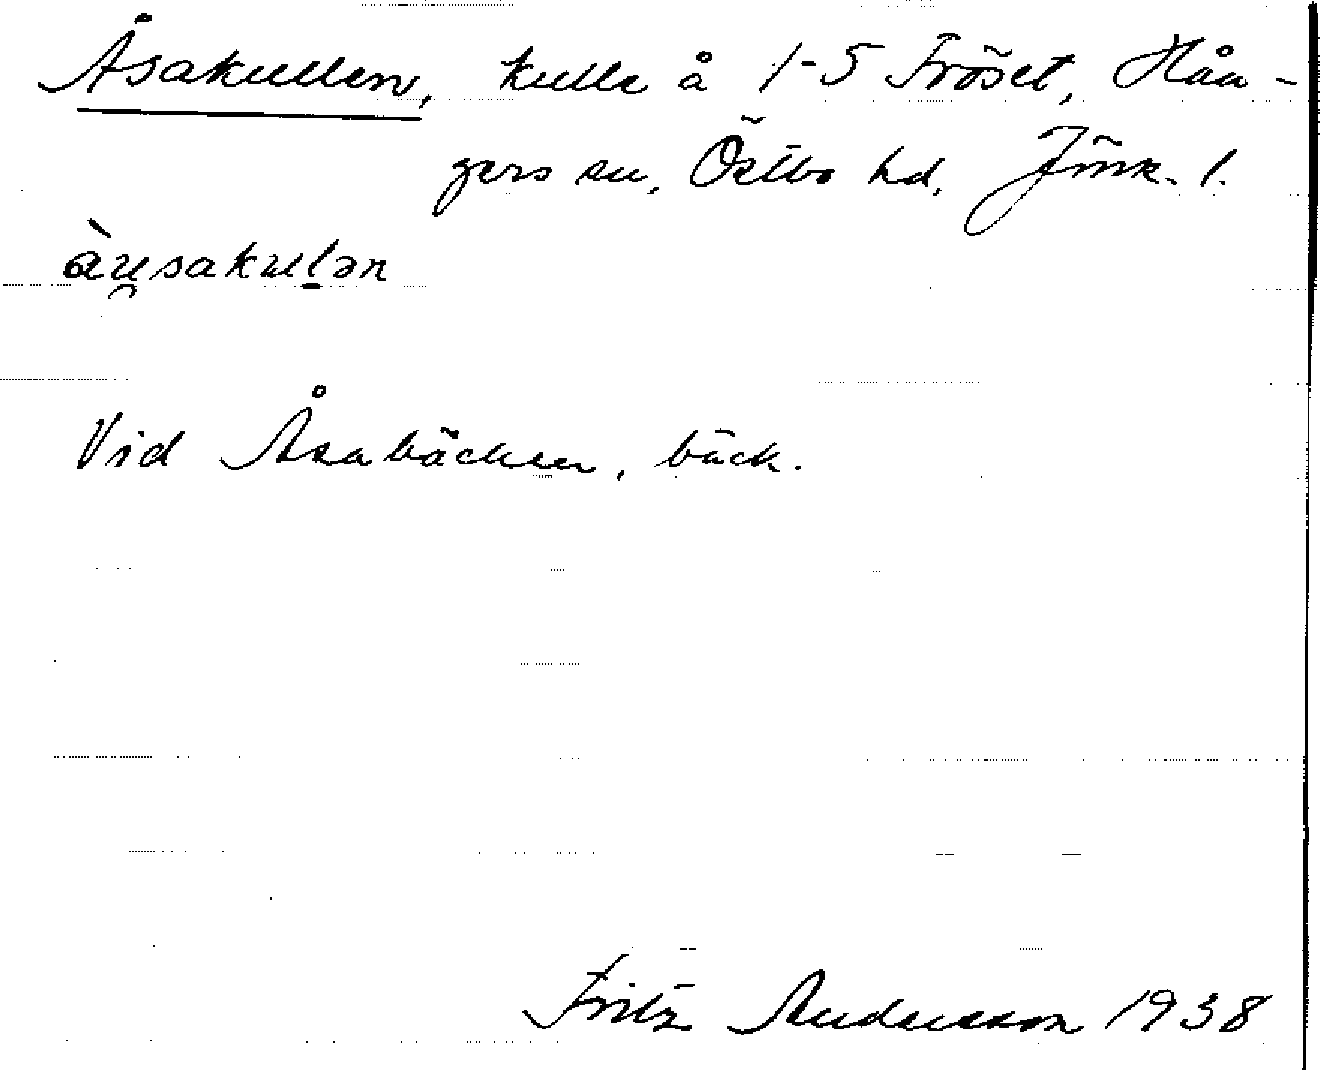 Åsakullen, kulle å 1-5 Fröset, Hån-
gers sn, Östbo hd, Jönk. l.
àu̯sakul̠ən
Vid Åsabäcken, bäck.
Fritz Andersson 1938